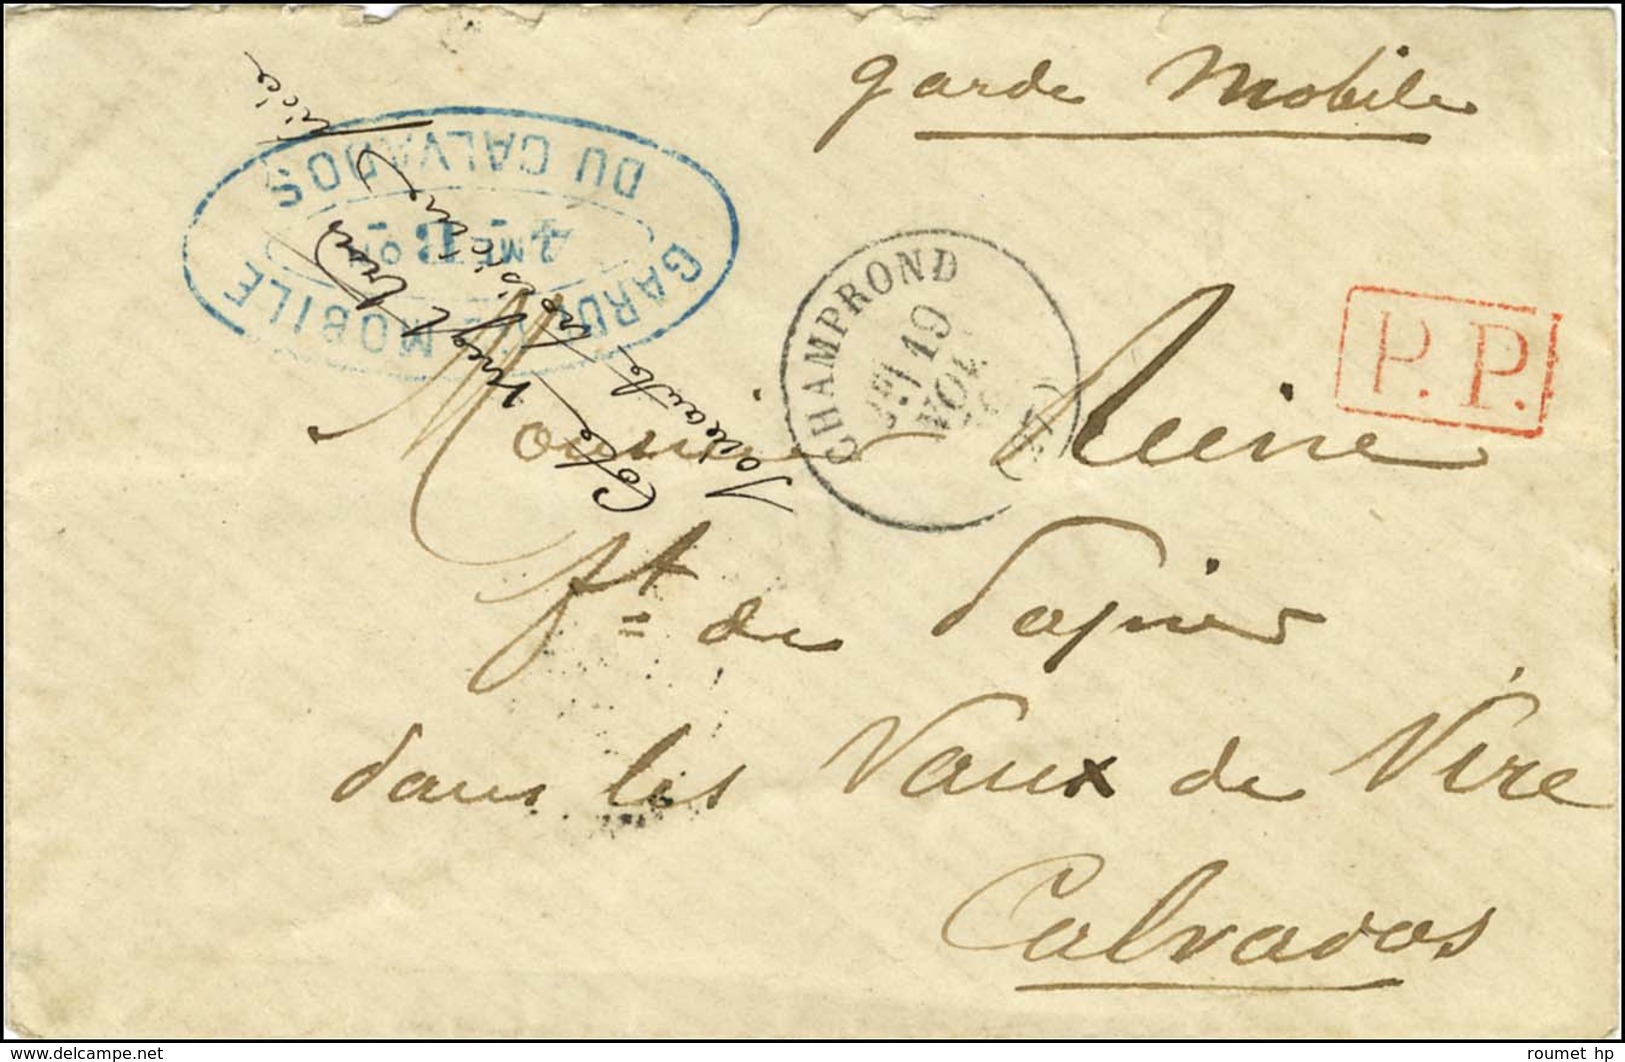 garde Mobile
GARDE MOBILE
DU CALVADOS
4 ME B ON
CHAMPROND
19
NOV.
(27)
P.P.
Monsieur Reine
ft de Papier
dans les Vaux de Vire
Calvados
Cote
www.delcampe.net
roumet hp